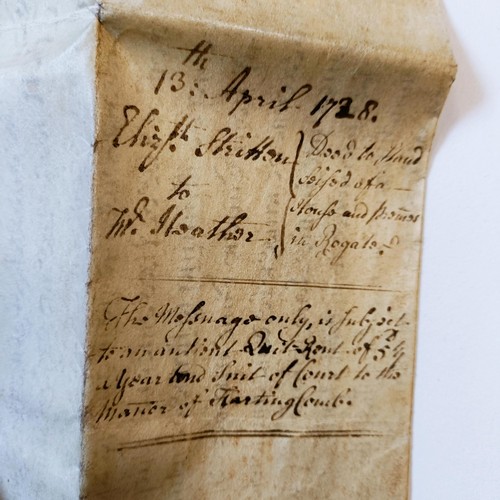 13:th April 1728.
Elizth. Stritton
to
Wm. Heather
Deed to stand
seised of a
House and Premes
in Rogate.
The Messuage only, is subject
to an antient Quit-Rent of
a Year and Suit of Court to the
Manor of Harting Comb.